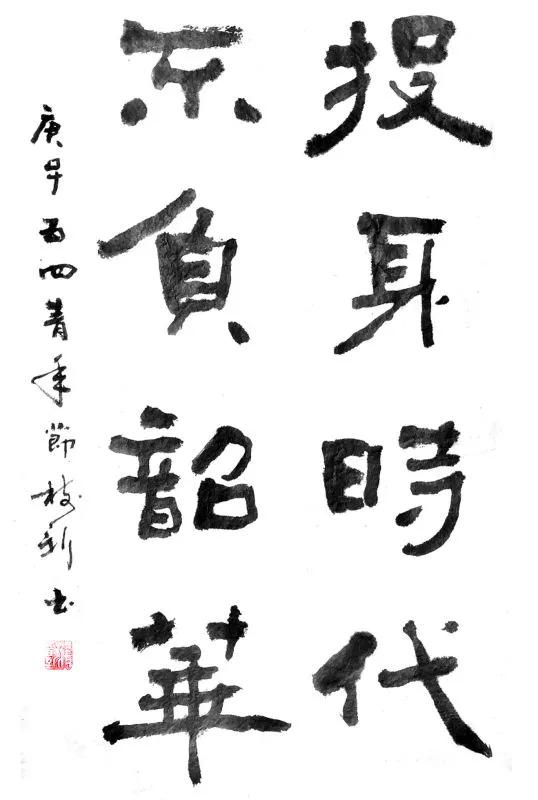 投身時代
不負韶華
庚子五四青年節 新書